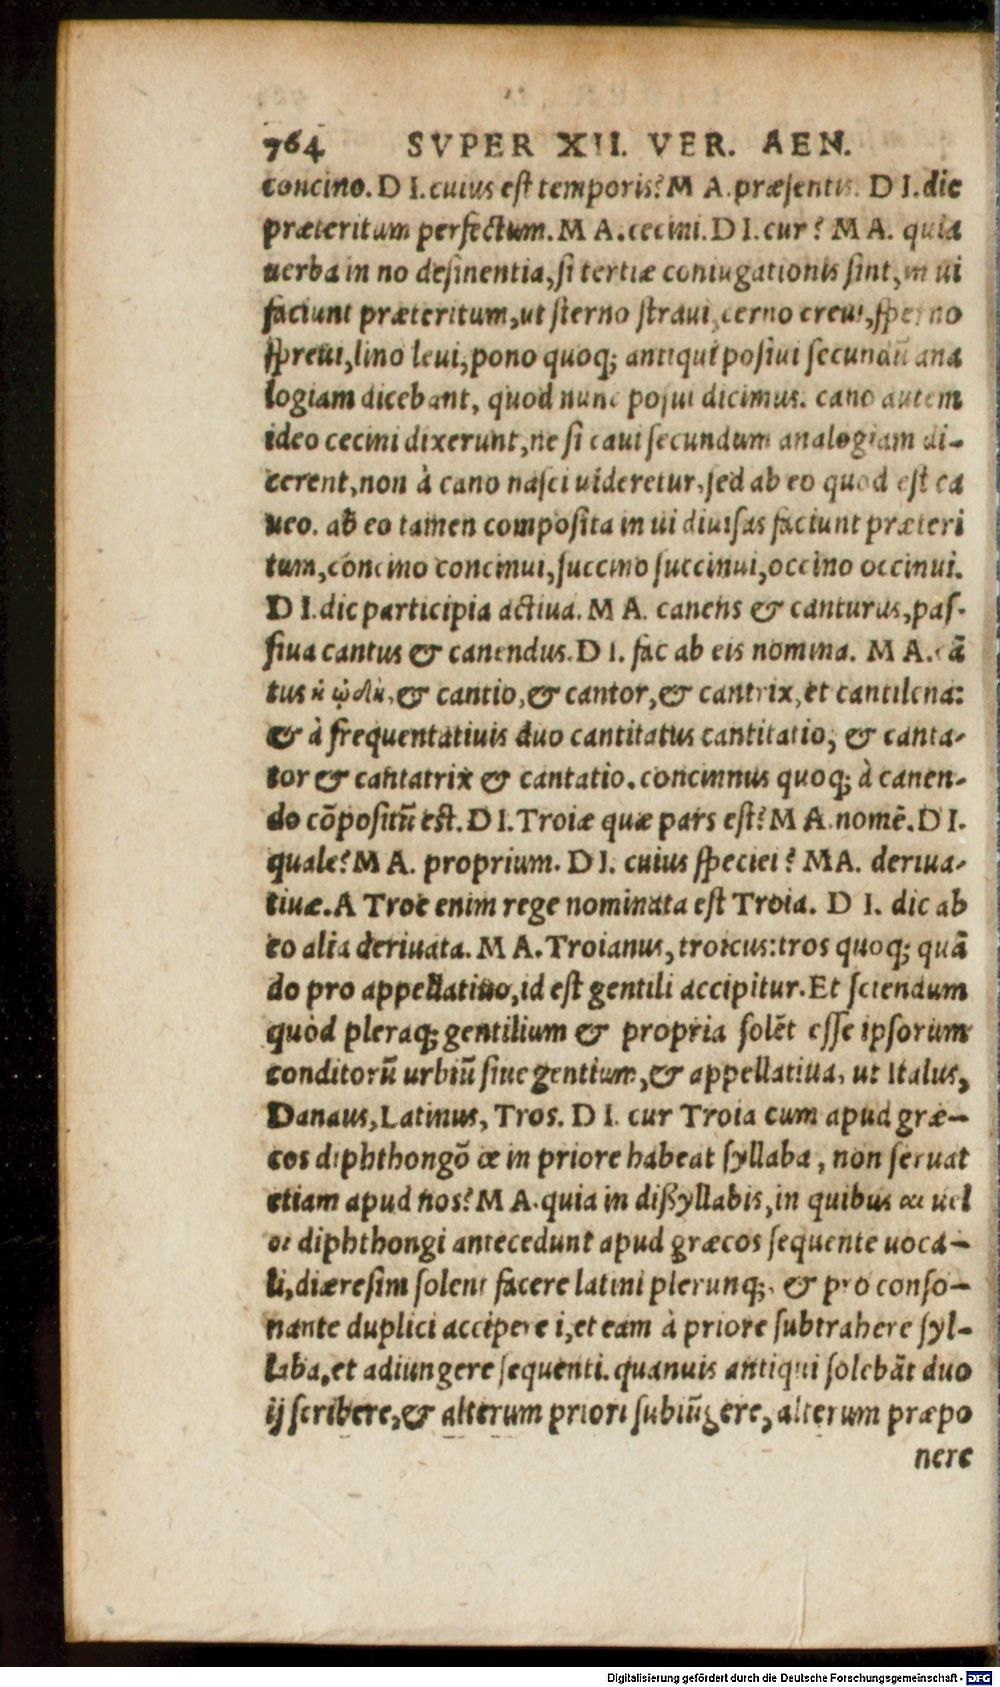 764 SVPER XII. VER. AEN.
concino. D I. cuius est temporis? M A. præsentis. D I. dic
præteritum perfectum. M A. cecini. D I. cur? M A. quia
uerba in no desinentia, si tertiæ coniugationis sint, in ui
faciunt præteritum, ut sterno straui, cerno creui, sperno
spreui, lino leui, pono quoq; antiqui posiui secundũ ana
logiam dicebant, quod nunc posui dicimus. cano autem
ideo cecini dixerunt, ne si caui secundum analogiam di-
cerent, non à cano nasci uideretur, sed ab eo quod est ca
ueo. ab eo tamen composita in ui diuisas faciunt præteri
tum, concino concinui, succino succinui, occino occinui.
D I. dic participia actiua. M A. canens & canturus, pas-
siua cantus & canendus. D I. fac ab eis nomina. M A. cã
tus ἡ ᾠδὴ, & cantio, & cantor, & cantrix, et cantilena:
& à frequentatiuis duo cantitatus cantitatio, & canta-
tor & cantatrix & cantatio. concinnus quoq; à canen-
do cõpositũ est. D I. Troiæ quæ pars est? M A. nomẽ. D I.
quale? M A. proprium. D I. cuius speciei? MA. deriua-
tiuæ. A Troe enim rege nominata est Troia. D I. dic ab
eo alia deriuata. M A. Troianus, troicus: tros quoq; quã
do pro appellatiuo, id est gentili accipitur. Et sciendum
quòd pleraq; gentilium & propria solẽt esse ipsorum
conditorũ urbiũ siue gentium, & appellatiua, ut Italus,
Danaus, Latinus, Tros. D I. cur Troia cum apud græ-
cos diphthongõ œ in priore habeat syllaba, non seruat
etiam apud nos? M A. quia in dißyllabis, in quibus αι uel
οι diphthongi antecedunt apud græcos sequente uoca-
li, diæresim solent facere latini plerunq;, & pro conso-
nante duplici accipere i, et eam à priore subtrahere syl-
laba, et adiungere sequenti. quanuis antiqui solebãt duo
ij scribere, & alterum priori subiũgere, alterum præpo
nere
Digitalisierung gefördert durch die Deutsche Forschungsgemeinschaft - DFG